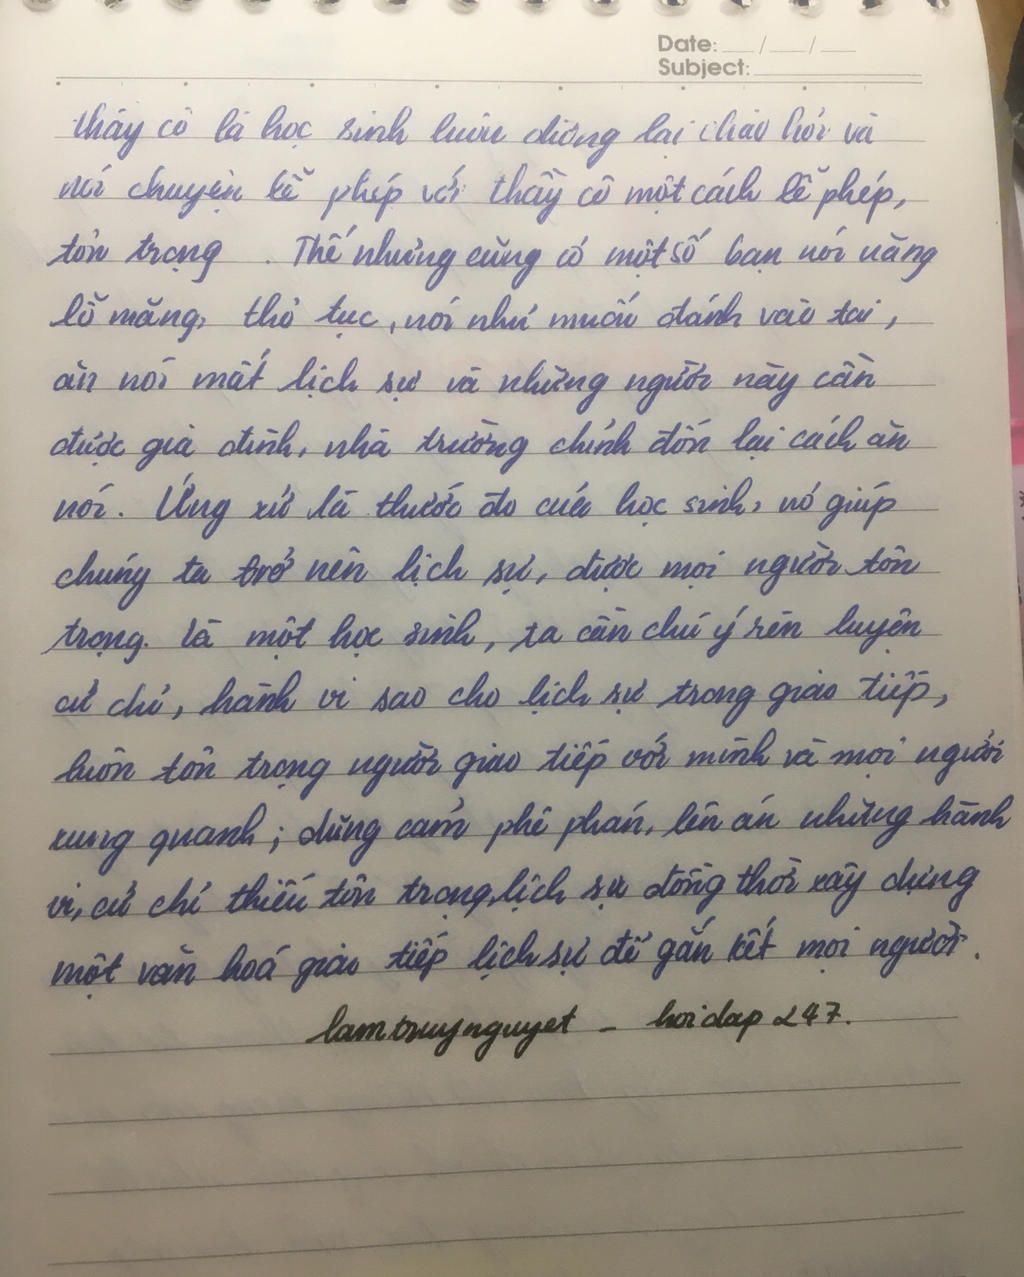 Date: __/__/__
Subject:
thầy cô là học sinh luôn dừng lại chào hỏi và
nói chuyện lễ phép với thầy cô một cách lễ phép,
tôn trọng . Thế nhưng cũng có một số bạn nói năng
lỗ mãng, thô tục, nói như muốn đánh vào tai,
ăn nói mất lịch sự và những người này cần
được gia đình, nhà trường chỉnh đốn lại cách ăn
nói. Ứng xử là thước đo của học sinh, nó giúp
chúng ta trở nên lịch sự, được mọi người tôn
trọng. Là một học sinh, ta cần chú ý rèn luyện
cử chỉ, hành vi sao cho lịch sự trong giao tiếp,
luôn tôn trọng người giao tiếp với mình và mọi người
xung quanh; dũng cảm phê phán, lên án những hành
vi, cử chỉ thiếu tôn trọng, lịch sự đồng thời xây dựng
một văn hoá giao tiếp lịch sự để gắn kết mọi người.
lamtruynguyet - hoidap 247.